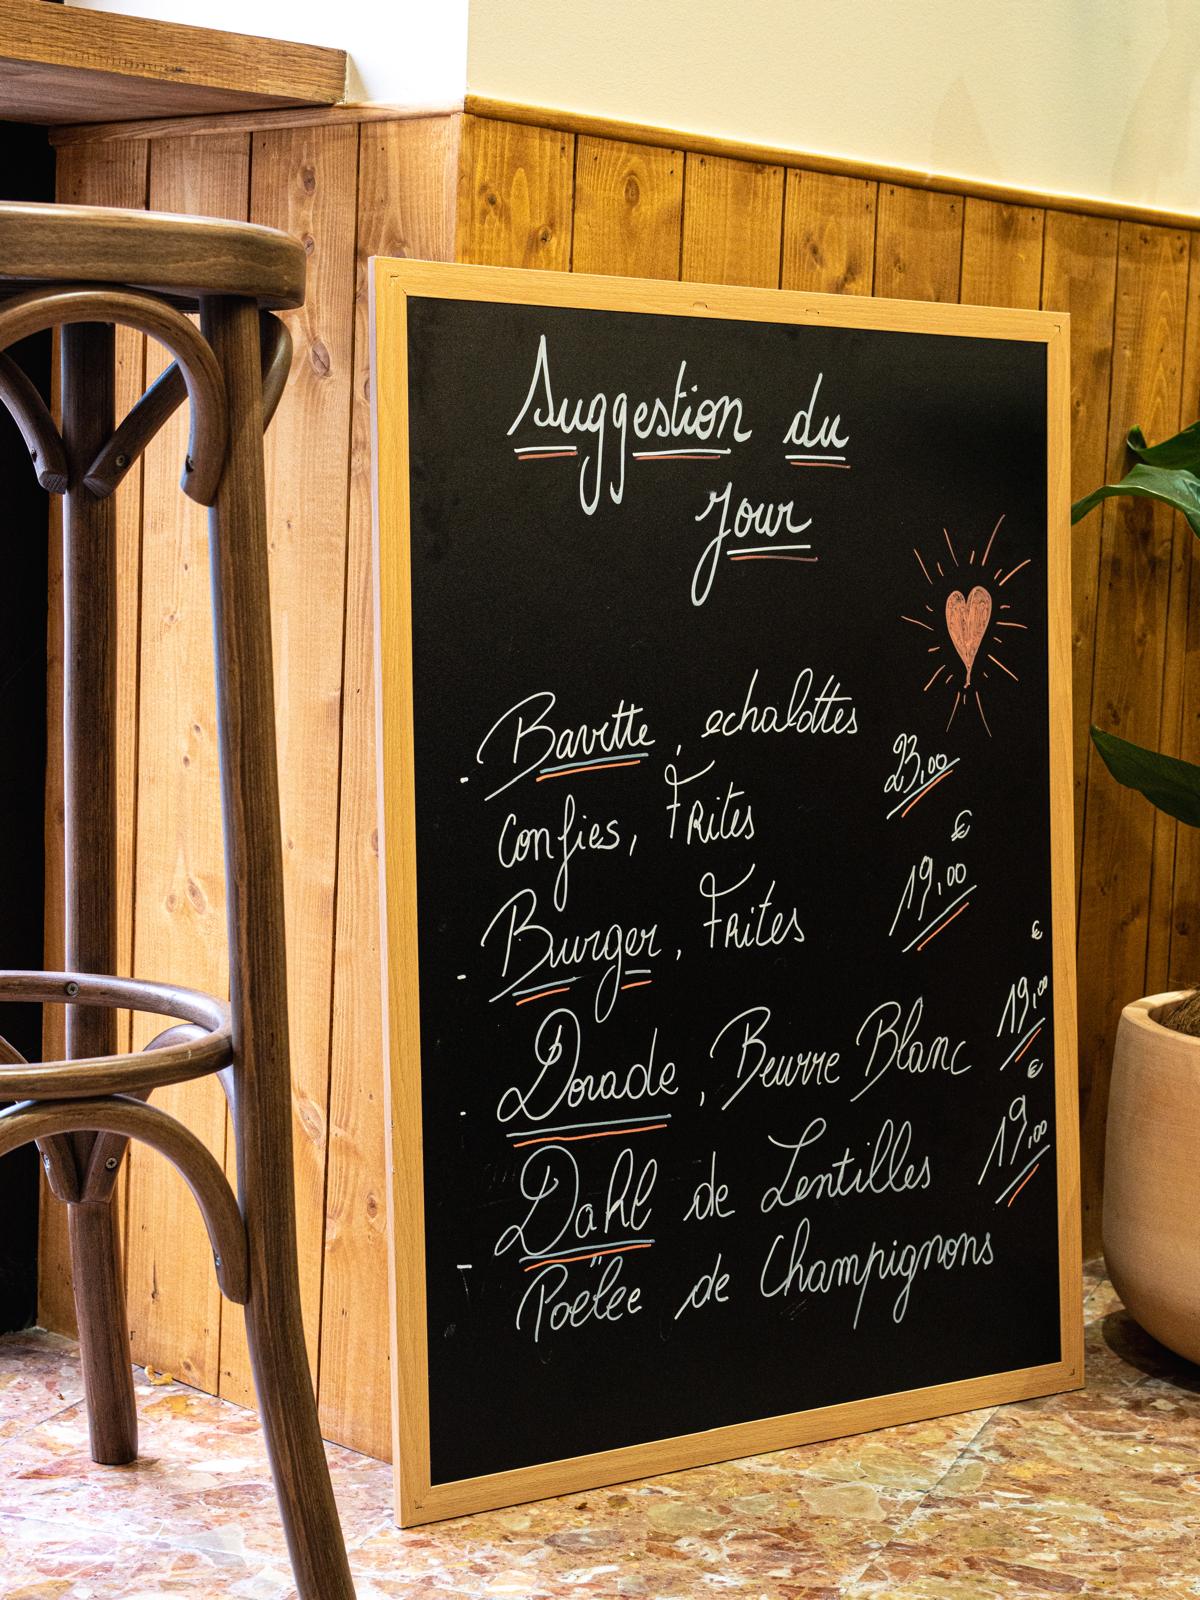 Suggestion du
Jour
- Bavette, echalottes 23,00
confies, Frites
€
- Burger, Frites 19,00
€
- Dorade, Beurre Blanc 19,00
€
- Dahl de Lentilles 19,00
Poëlee de Champignons